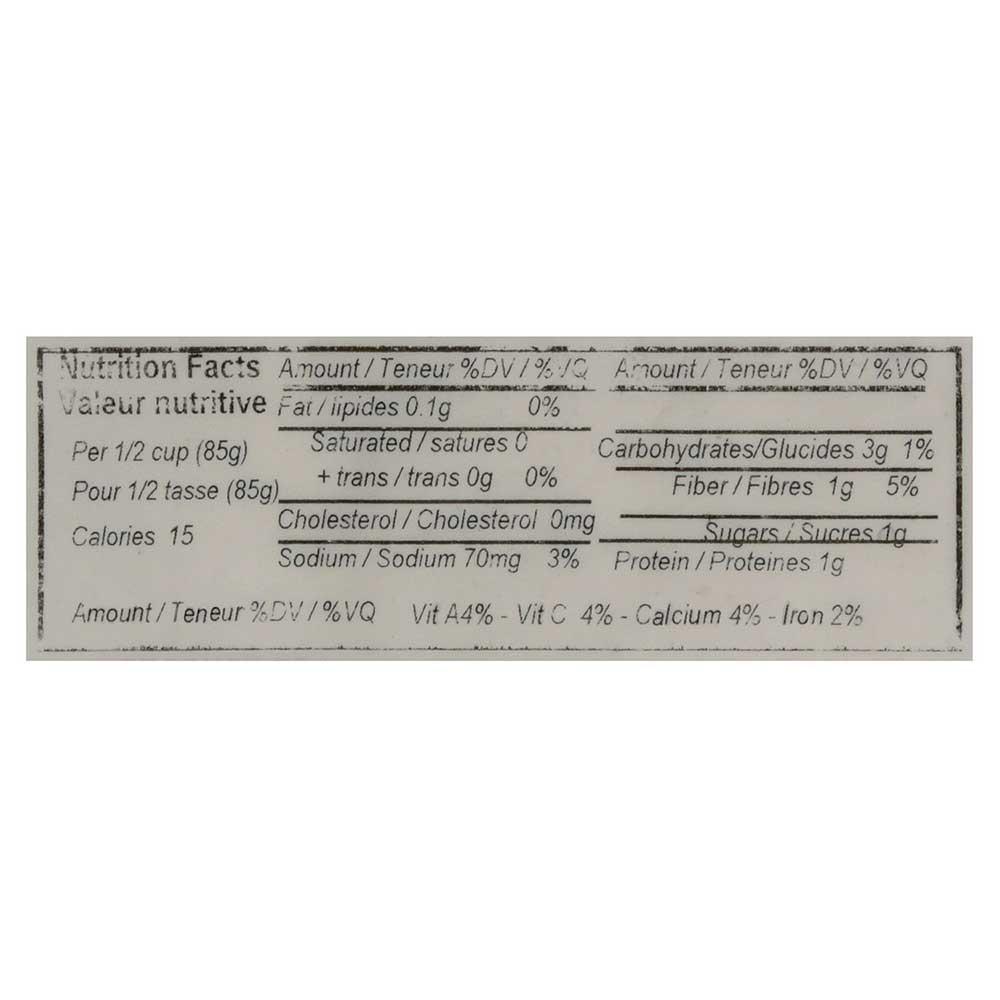 Nutrition Facts
Valeur nutritive
Per 1/2 cup (85g)
Pour 1/2 tasse (85g)
Calories 15
Amount / Teneur %DV / %VQ
Fat / lipides 0.1g 0%
Saturated / satures 0
+ trans / trans 0g 0%
Cholesterol / Cholesterol 0mg
Sodium / Sodium 70mg 3%
Amount / Teneur %DV / %VQ
Carbohydrates/Glucides 3g 1%
Fiber / Fibres 1g 5%
Sugars / Sucres 1g
Protein / Proteines 1g
Amount / Teneur %DV / %VQ Vit A4% - Vit C 4% - Calcium 4% - Iron 2%